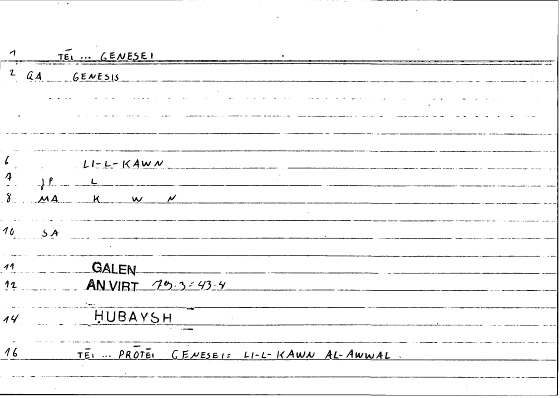 1 TĒI ... GENESEI
2 GA GENESIS
6 LI-L-KAWN
7 JP L
8 MA K W N
10 SA
11 GALEN
12 AN.VIRT 75.3=43.4
14 ḤUBAYSH
16 TĒI ... PRŌTĒI GENESEI= LI-L-KAWN AL-AWWAL